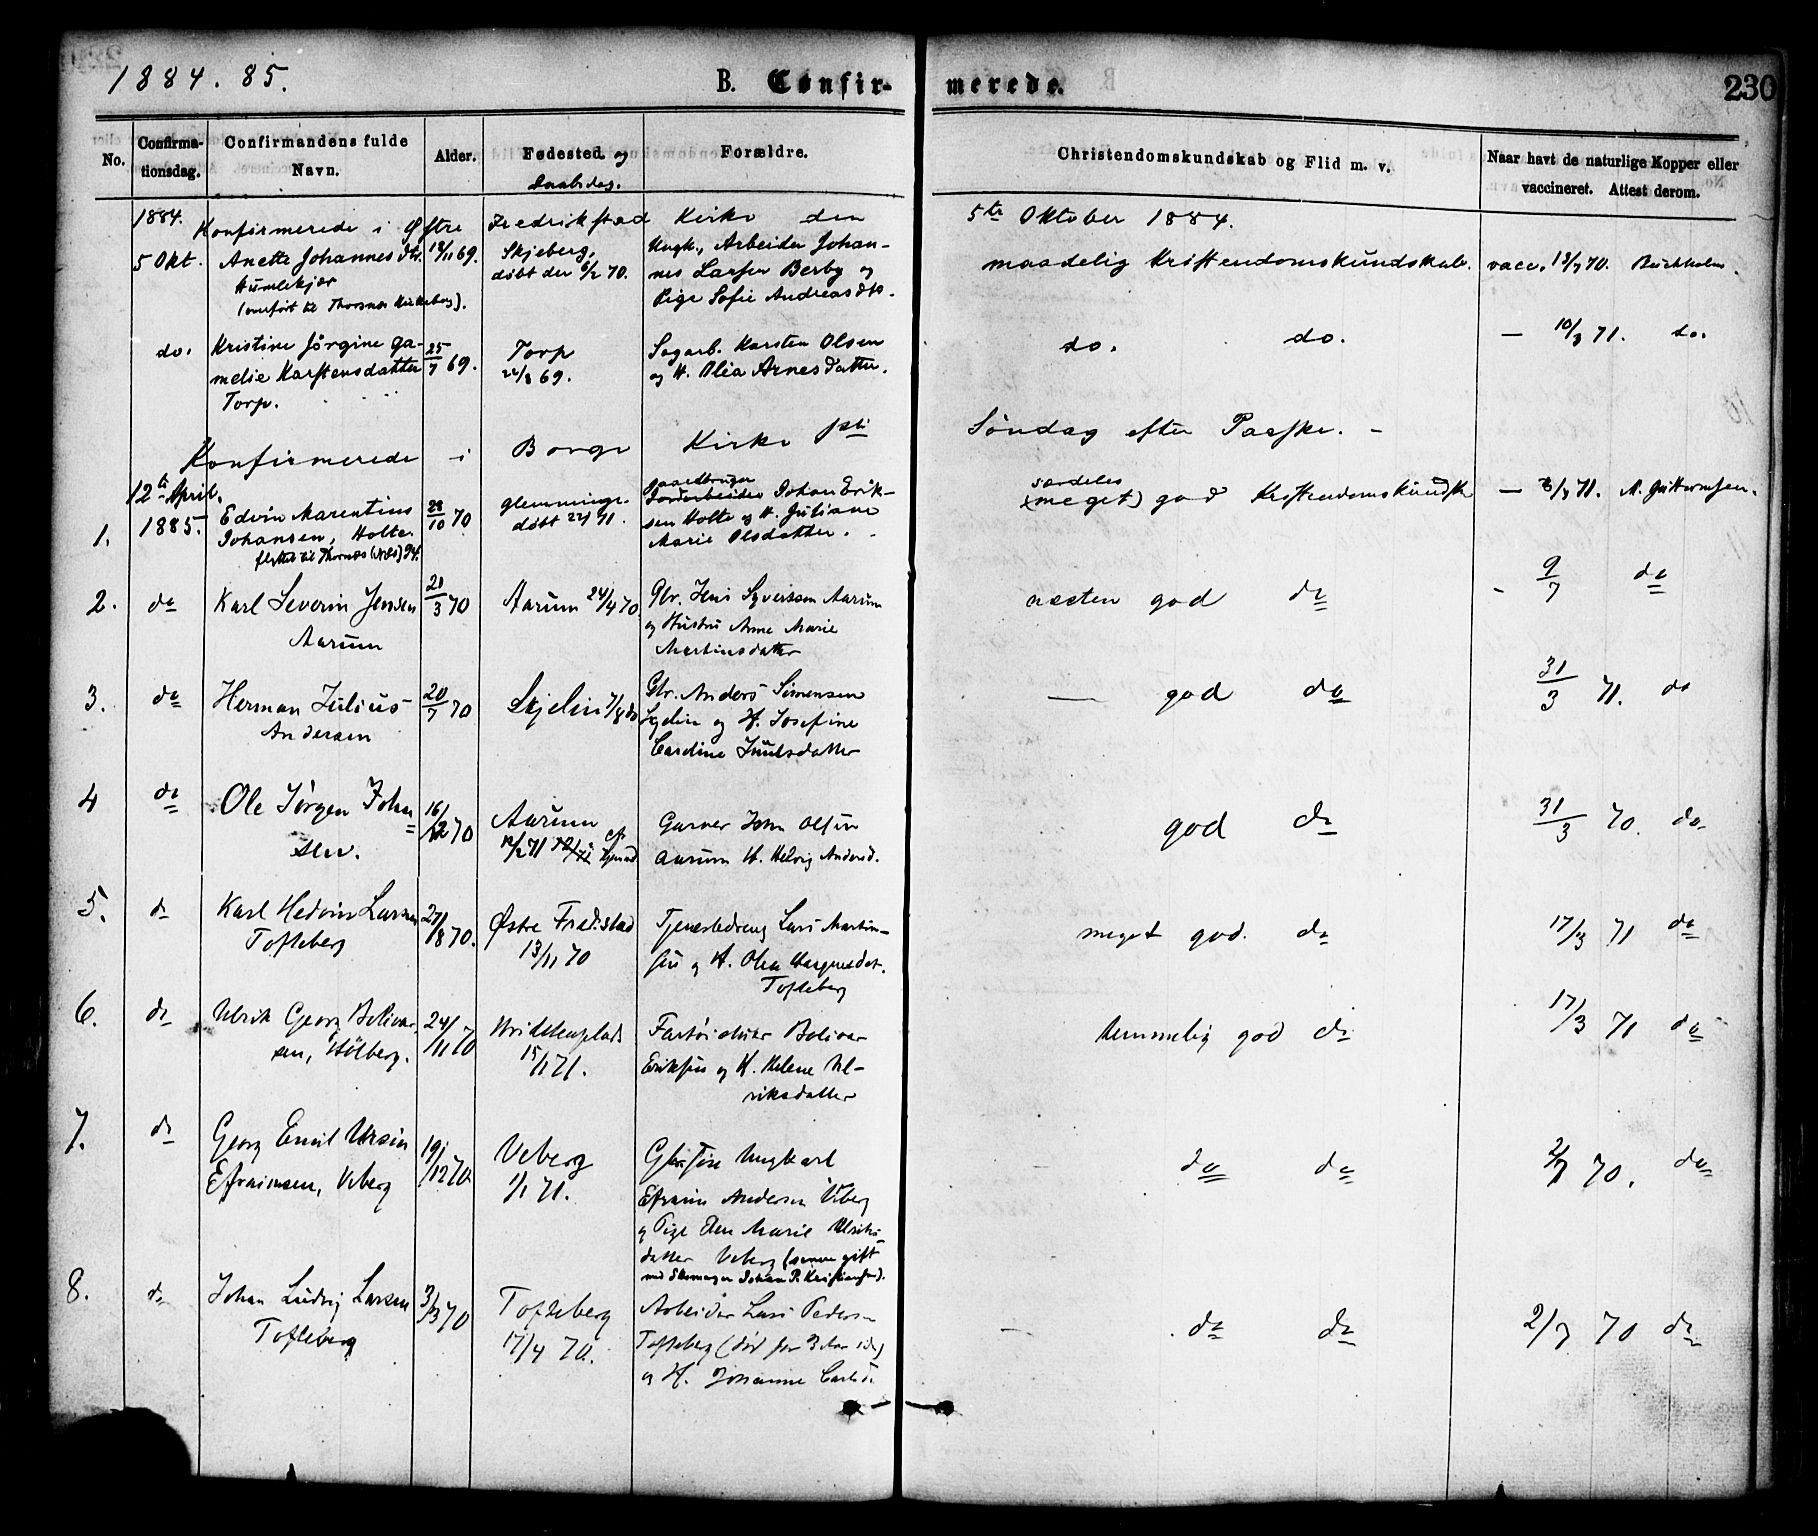 1884. 85.
B. Confirmerede.
230
No.
Confirmationsdag.
Confirmandens fulde Navn.
Alder.
Fødested og Daabsdag.
Forældre.
Christendomskundskab og Flid m. v.
Naar havt de naturlige Kopper eller vaccineret. Attest derom.
1884. Konfirmerede i Østre Fredrikstad Kirke den 5te Oktober 1884.
5 Okt. Anette Johannesdtr. 18/11 69. Skjeberg, Ungk., Arbeider Johan- maadelig Kristendomskundskab. vacc. 13/7 70. Buchholm.
Humlekjær døbt den 6/2 70. nes Larsen Berby og
(overført til Thorsnæs Kirkebog). Pige Sofie Andreasdtr.
do. Kristine Jørgine Ga- 25/7 69. Torp Sagarb. Karsten Olsen do. do. — 10/3 71. do.
melie Karstensdatter 22/8 69. og H. Olia Arnesdatter.
Torp.
Konfirmerede i Borge Kirke 1ste Søndag efter Paaske. –
12te April. Gaardbruger særdeles
1. 1885. Edvin Marentius 28/10 70 Glemminge. Jordarbeider Johan Erik- (meget) god Kristendomskundsk. — 71.
Johansen, Holte. døbt 22/1 71. sen Holte og H. Juliane
flyttet til Thorsnæs Marie Olsdatter.
2. do Karl Severin Jensen 21/3 70 Aarum 24/4 70. Gbr. Jens Syversen Aarum næsten god do - 9/7 do
Aarum og Hustru Anne Marie
Martinsdatter
3. do Herman Julius 20/7 70 Skjelin 7/8 do Gbr. Anders Simensen — god do 31/3 71. do
Andersen og H. Josefine
Juulsdatter
4 do Ole Jørgen John 16/12 70 Aarum Garver John Olsen god do 31/3 70. do
sen. 12/2 71 Aarum H. Helvig Andersd.
5. do Karl Hedvin Larsen 27/8 70. Østre Fredstad Tjenestedreng Lars Martin- meget god. do 17/3 71 do
Tofteberg 13/11 70 sen og H. Olea
Tofteberg
6. do Ulrik Georg Bolivar 24/11 70 Hvidstenplads Bolivar temmelig god do 17/3 71 do
sen, Hølberg. 15/1 71. Eriksen og H. Helene Ul-
riksdatter
7. do Georg Emil Ursin 19/12 70. Veberg Ungkarl do do 2/7 70. do
Efraimsen, Veberg 1/1 71. Efraim Andersen Viberg
og Pige Marie Ulriks-
datter Veberg (senere gift
med Skomager Johan P. Kristiansen).
8. do Johan Ludvig Larsen 3/3 70 Tofteberg Arbeider Lars Pedersen — do do 2/7 70 do
Tofteberg 17/4 70. Tofteberg (død for 3 Aar siden)
og H. Johanne